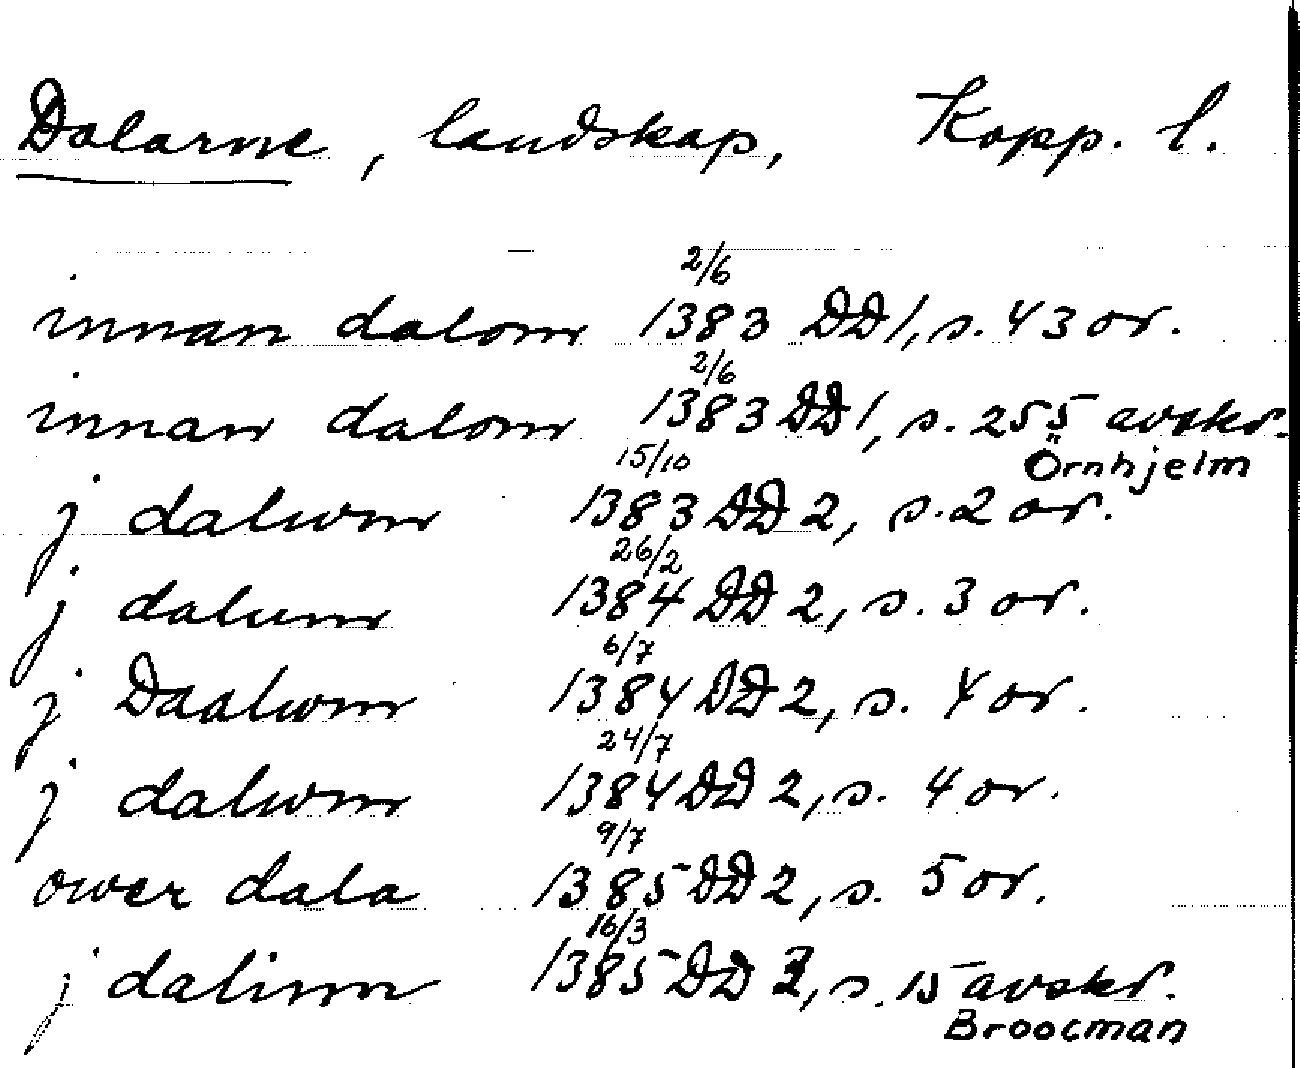 Dalarne, landskap, Kopp. l.
innan dalom 2/6 1383 DD 1, s. 43 or.
innan dalom 2/6 1383 DD 1, s. 255 avskr. Örnhjelm
j dalwm 15/10 1383 DD 2, s. 2 or.
j dalum 26/2 1384 DD 2, s. 3 or.
j Daalwm 6/7 1384 DD 2, s. 4 or.
j dalwm 24/7 1384 DD 2, s. 4 or.
ower dala 9/7 1385 DD 2, s. 5 or.
j dalinn 16/3 1385 DD 2, s. 15 avskr. Broocman